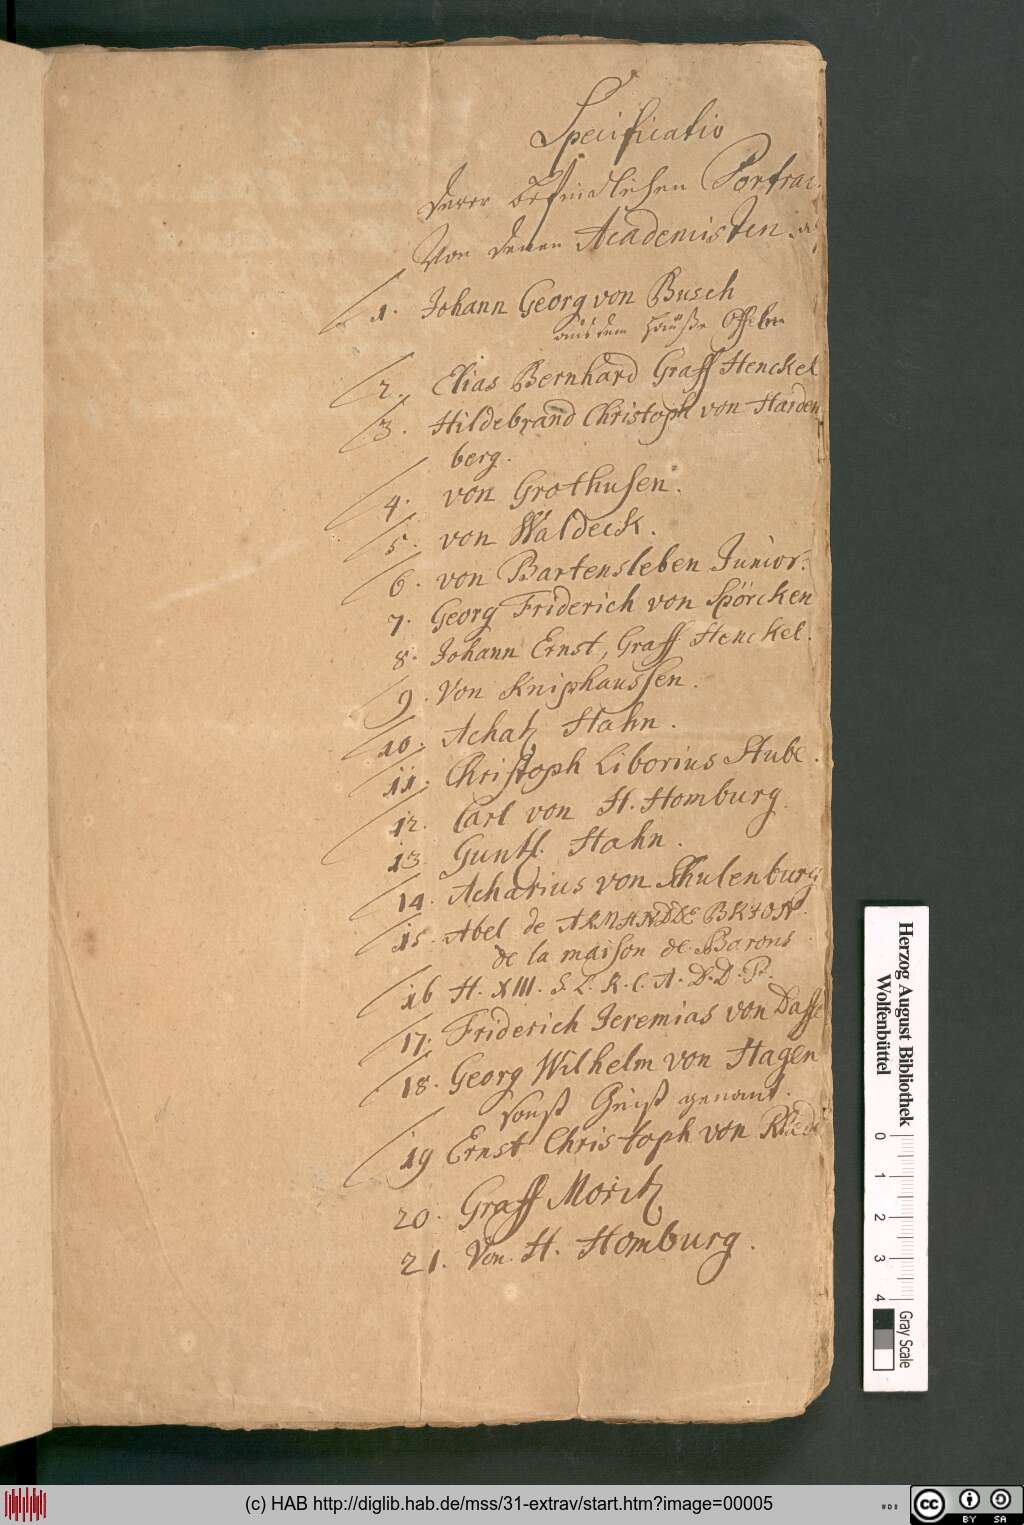 Specificatio
derer befindlichen Portrai
Von denen Academisten
1. Johann Georg von Busch
aus dem Hauße Offelen
2. Elias Bernhard Graff Henckel
3. Hildebrand Christoph von Harden
berg.
4. von Grothusen.
5. von Waldeck.
6. von Bartensleben Junior.
7. Georg Friderich von Spörcken
8. Johann Ernst, Graff Henckel.
9. Von Kniphaussen.
10. Achatz Hahn.
11. Christoph Liborius Stube.
12. Carl von H. Homburg.
13 Guntz. Hahn.
14. Acharius von Schulenburg
15. Abel de
de la maison de Barons
16 H. XIII. S. L. R. C. A. D. D. P.
17. Friderich Jeremias von Dasse
18. Georg Wilhelm von Hagen
sonst Geist genant.
19 Ernst Christoph von
20. Graff Moritz
21. Von H. Homburg.
Herzog August Bibliothek
Wolfenbüttel
0 1 2 3 4
Gray Scale
(c) HAB http://diglib.hab.de/mss/31-extrav/start.htm?image=00005
cc BY SA